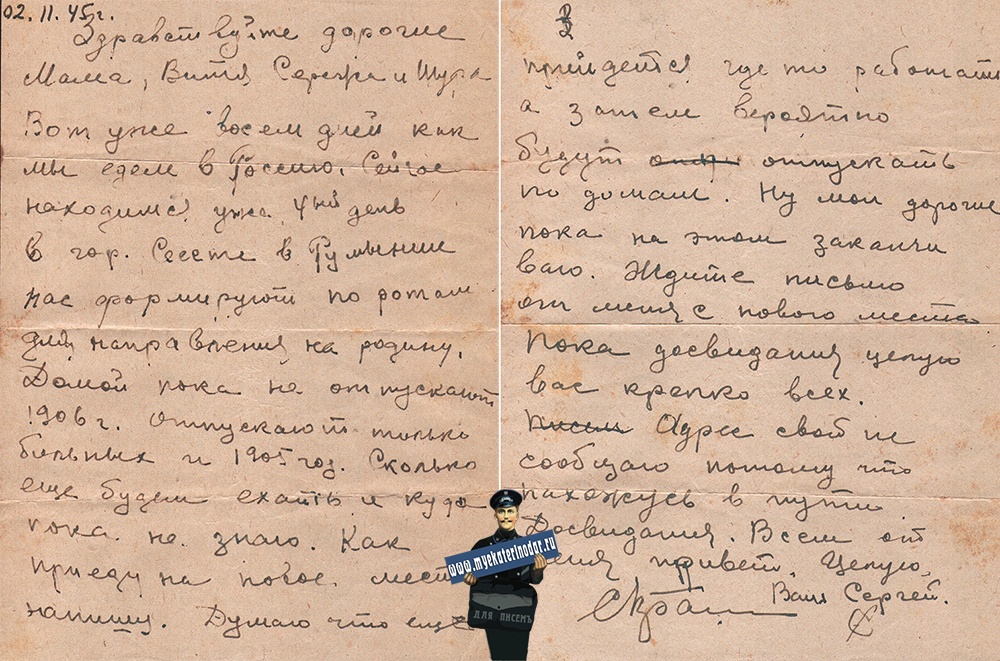 02.11.45г.
Здравствуйте дорогие
Мама, Витя Сережа и Шура
Вот уже восем дней как
мы едем в Россию. Сейчас
находимся уже 4ый день
в гор. в Румынии
нас формируют по ротам
для направления на родину.
Домой пока не отпускают
1906 г. Отпускают только
больных и 1905 год. Сколько
еще будем ехать и куда
пока не знаю. Как
приеду на новое место
напишу. Думаю что еще
прийдется где то работать
а затем вероятно
будут отпускать
по домам. Ну мои дорогие
пока на этом заканчи
ваю. Ждите письмо
от меня с нового места
Пока досвидания целую
вас крепко всех.
Писем Адрес свой не
сообщаю потому что
нахожусь в пути
Досвидания. Всем от
меня привет. Целую
Ваш Сергей.
www.myekaterinodar.ru
ДЛЯ ПИСЕМЪ